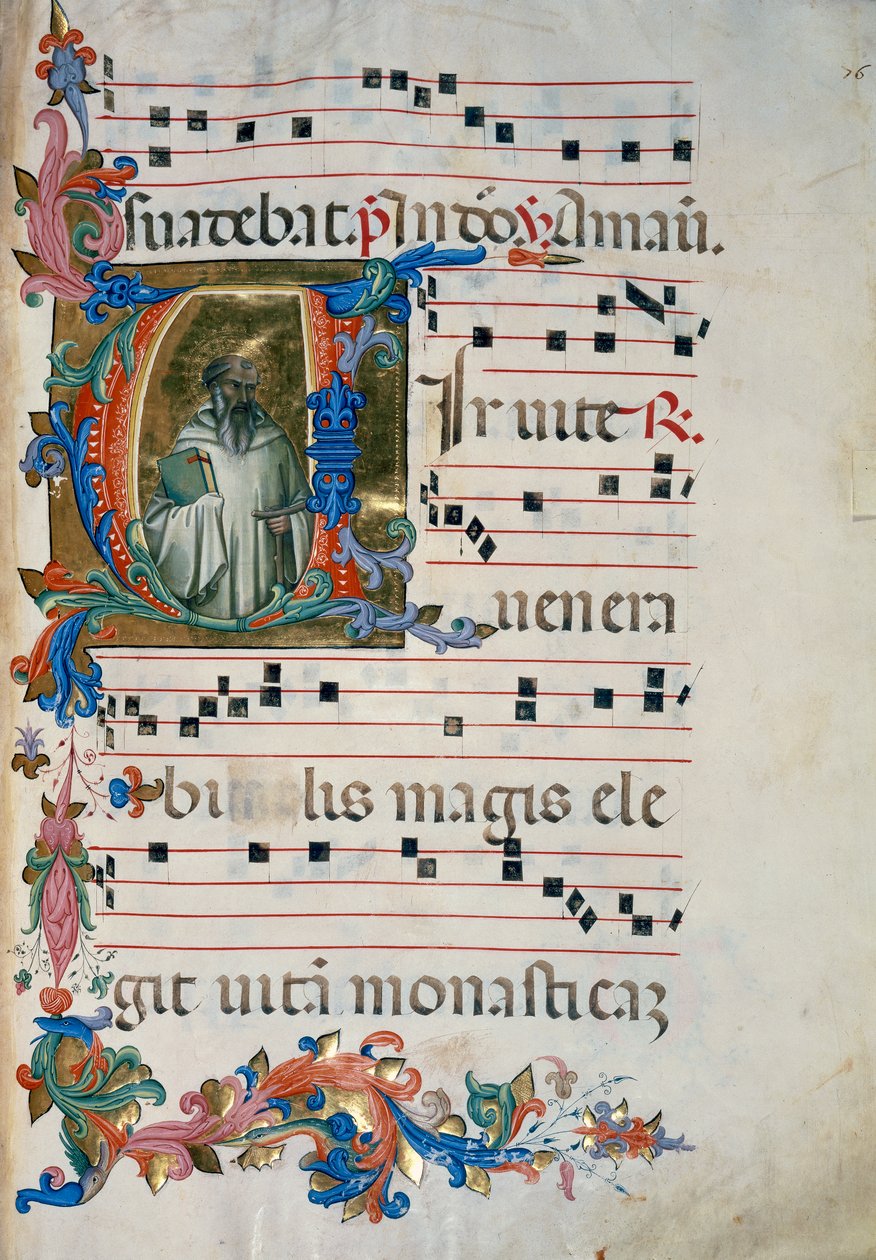 76
suadebat. p̄ In dn̄o ℣ Amaū.
VIr uite ℟.
uenera
bi lis magis ele
git uitā monasticaꝫ